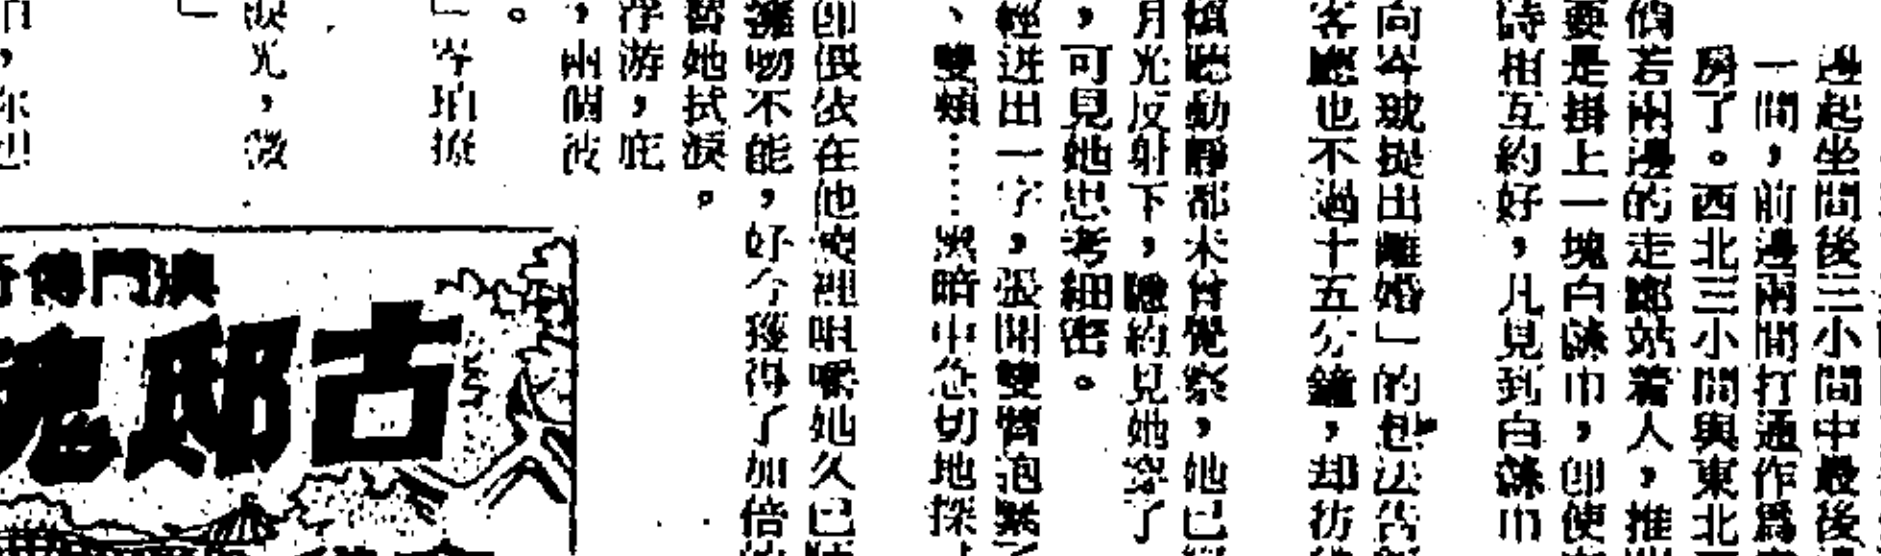 邊起坐間後三小間中最後
一間，前邊兩間打通作爲
房了。西北三小間與東北
俏若兩邊的走廊站着人，推
要是掛上一塊白餘巾，即使
時相互約好，凡見到白餘巾
向岑玻提出離婚」的包法告
客廳也不過十五分鐘，却彷
傾聽動靜都未曾覺察，他已
月光反射下，隱約見她穿了
，可見她思考細密。
經迸出一字，張開雙臂抱緊了
、雙頰……黑暗中急切地探
即偎依在他 裡咀嚼她久已
擁吻不能，好今獲得了加倍
替她拭淚。
浮游，庇
，兩個波
。
」岑珀撩
淚光，微
」
，你想
演門傳奇
古邸魂